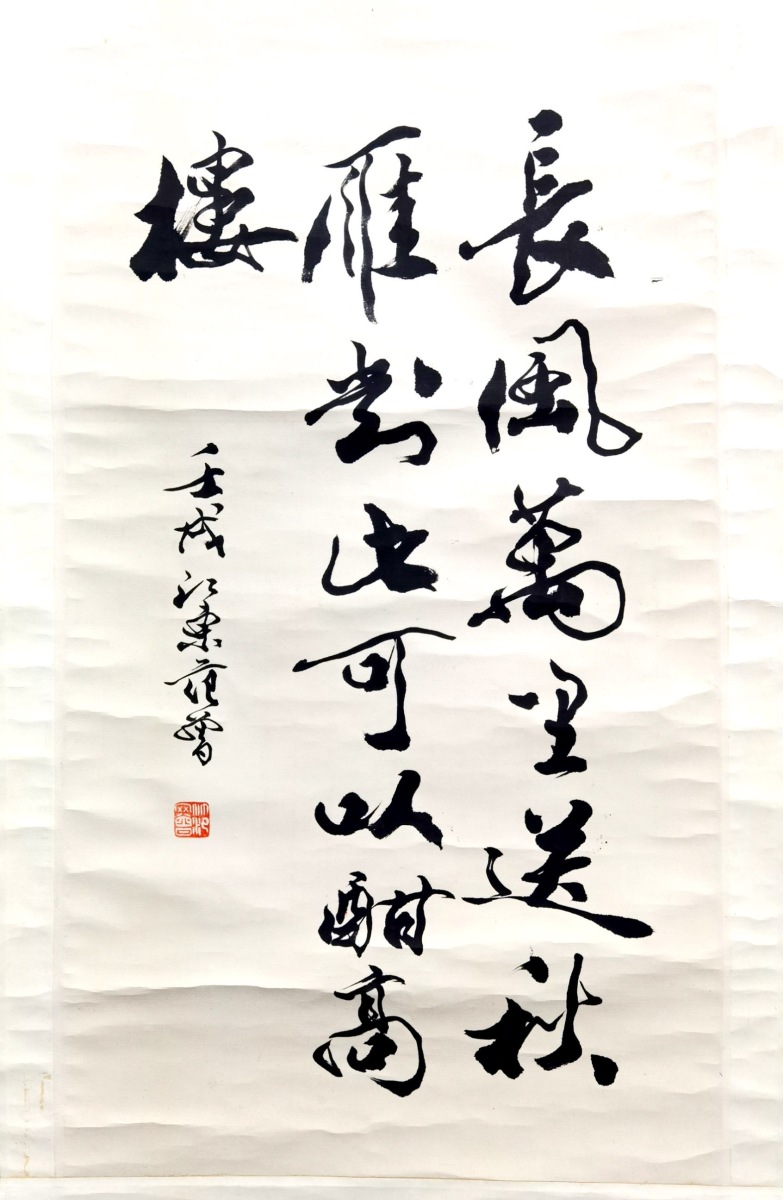 長風萬里送秋
雁對此可以酣高
樓
壬戌江東范曾